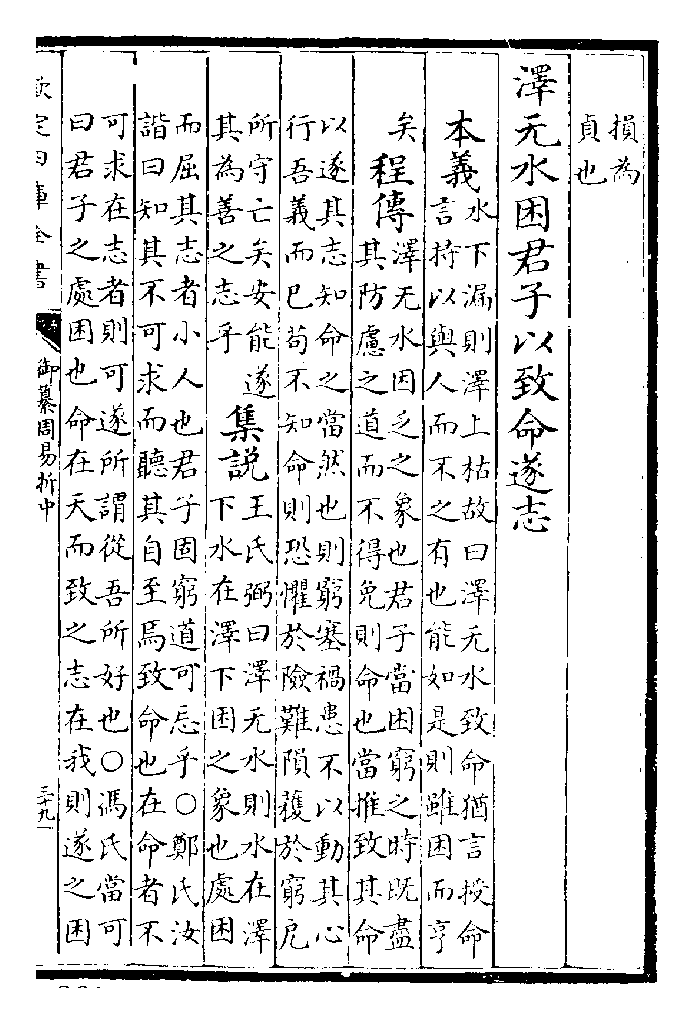 損為
貞也
澤无水困君子以致命遂志
本義
水下漏則澤上枯故曰澤无水致命猶言授命
言持以與人而不之有也能如是則雖困而亨
矣
程傳
澤无水困乏之象也君子當困窮之時既盡
其防慮之道而不得免則命也當推致其命
以遂其志知命之當然也則窮塞禍患不以動其心
行吾義而已苟不知命則恐懼於險難隕穫於窮戹
所守亡矣安能遂
其為善之志乎
集説
王氏弼曰澤无水則水在澤
下水在澤下困之象也處困
而屈其志者小人也君子固窮道可忘乎○鄭氏汝
諧曰知其不可求而聽其自至焉致命也在命者不
可求在志者則可遂所謂從吾所好也○馮氏當可
曰君子之處困也命在天而致之志在我則遂之困
欽定四庫全書
御纂周易折中
三十九